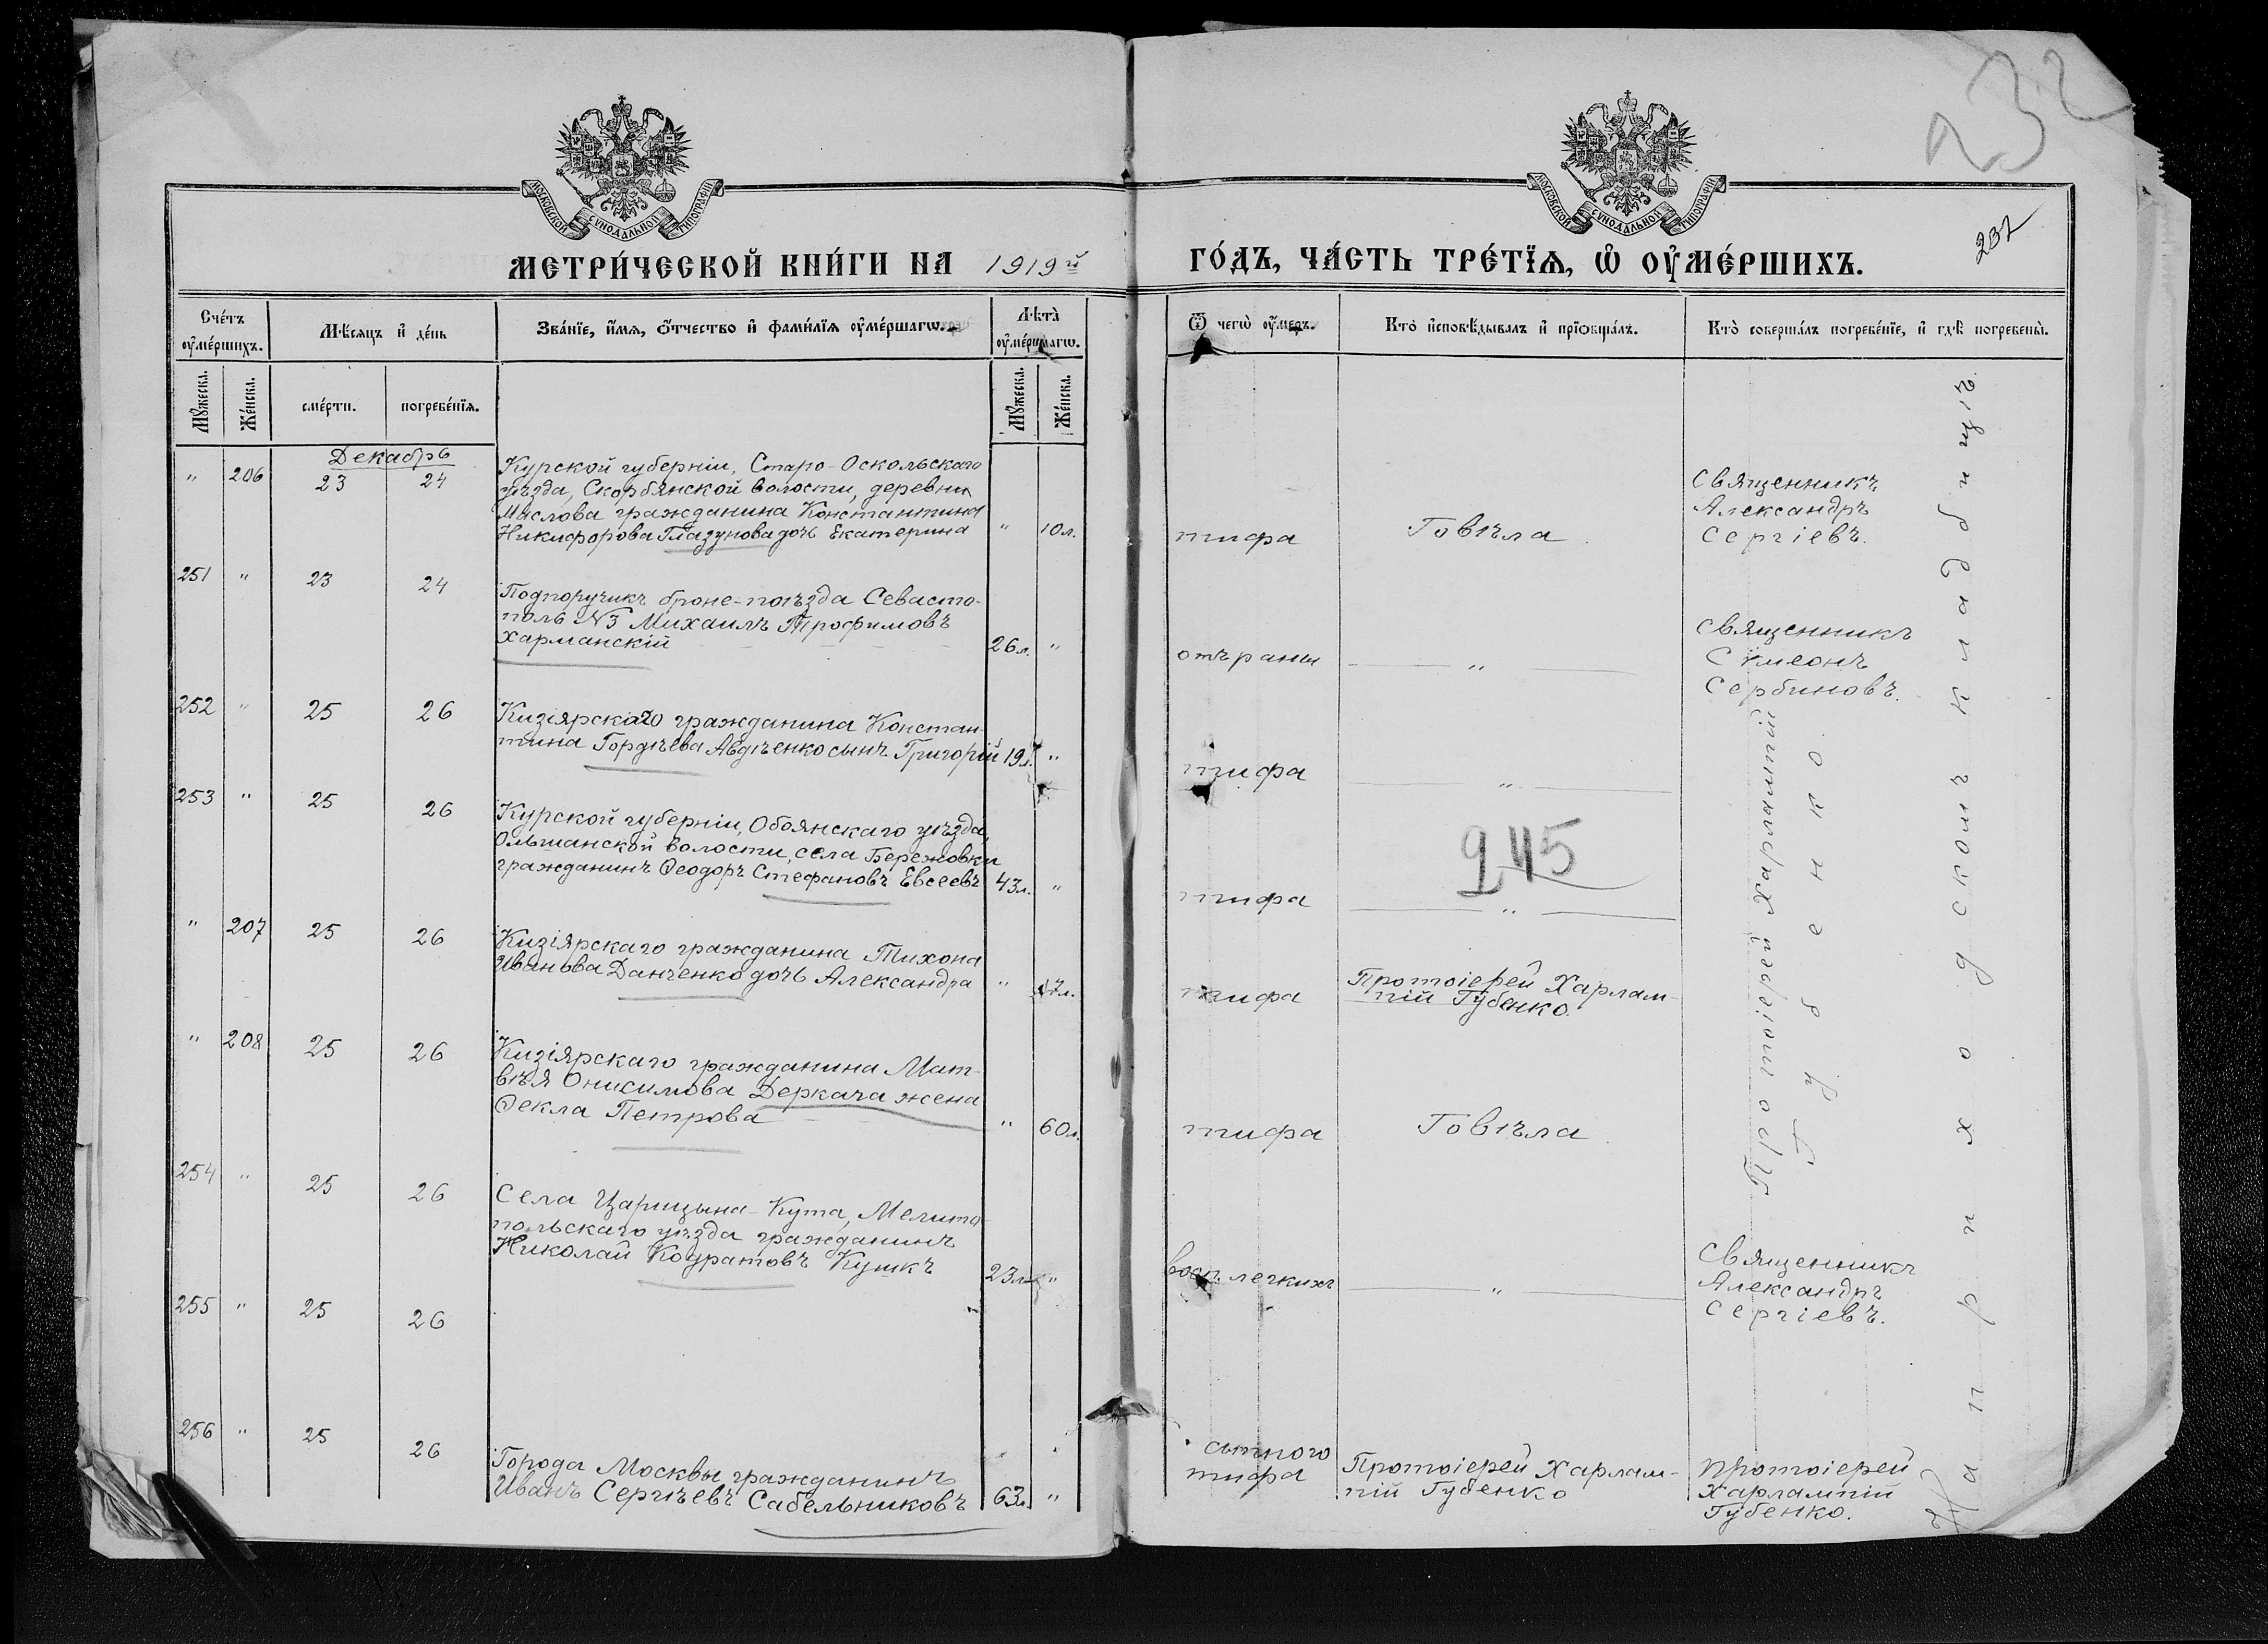 232
232
МОСКОВСКОЙ СУНОДАЛЬНОЙ ТИПОГРАФІИ
МОСКОВСКОЙ СУНОДАЛЬНОЙ ТИПОГРАФІИ
МЕТРИ́ЧЕСКОЙ КНИ́ГИ НА 1919й ГО́ДЪ, ЧА́СТЬ ТРЕ́ТЇѦ, Ѽ ОУ҆МЕ́РШИХЪ.
Сче́тъ оу҆ме́ршихъ.
Мѣ́сѧцъ и҆ де́нь
Зва́нїе, и҆́мѧ, ѻ҆́тчество и҆ фами́лїѧ оу҆ме́ршагѡ.
Лѣ́та̀ оу҆ме́ршагѡ.
Ѿ чегѡ̀ оу҆́меръ.
Кто̀ и҆сповѣ́дывалъ и҆ прїѡбща́лъ.
Кто̀ соверша́лъ погребе́нїе, и҆ гдѣ̀ погребены̀.
Мꙋ́жеска. Же́нска. сме́рти. погребе́нїѧ. Мꙋ́жеска. Же́нска.
Декабрь
" 206 23 24
Курской губерніи, Старо-Оскольскаго
уѣзда, Скорбянской волости, деревни
Маслова гражданина Константина
Никифорова Глазунова дочь Екатерина " 10 л.
тифа
Говѣла
Священникъ
Александръ
Сергіевъ.
251 " 23 24
Подпоручикъ броне-поѣзда Севасто-
поль №3 Михаилъ Трофимовъ
Харманскій 26 л. "
отъ раны
"
Священникъ
Сѵмеонъ
Сербиновъ.
252 " 25 26
Кизіярскаго гражданина Констан-
тина Гордѣева Авдѣенко сынъ Григорій 19 л. "
тифа
"
253 " 25 26
Курской губерніи, Обоянскаго уѣзда,
Ольшанской волости, села Бережовки
гражданинъ Ѳеодоръ Стефановъ Евсеевъ 43 л. "
тифа
"
" 207 25 26
Кизіярскаго гражданина Тихона
Иванова Данченко дочь Александра "
тифа
Протоіерей Харлам-
пій Губенко.
" 208 25 26
Кизіярскаго гражданина Мат-
вѣя Онисимова Деркача жена
Ѳекла Петрова " 60 л.
тифа
Говѣла
Протоіерей Харлампій
Губенко.
254 " 25 26
Села Царицына-Кута, Мелито-
польскаго уѣзда гражданинъ
Николай Кодратовъ Кушкъ 23 л. "
восп. легкихъ
"
Священникъ
Александръ
Сергіевъ.
255 " 25 26
256 " 25 26
Города Москвы гражданинъ
Иванъ Сергѣевъ Сабельниковъ 63 л. "
сыпного
тифа
Протоіерей Харлам-
пій Губенко
Протоіерей
Харлампій
Губенко.
На приходскомъ кладбищѣ